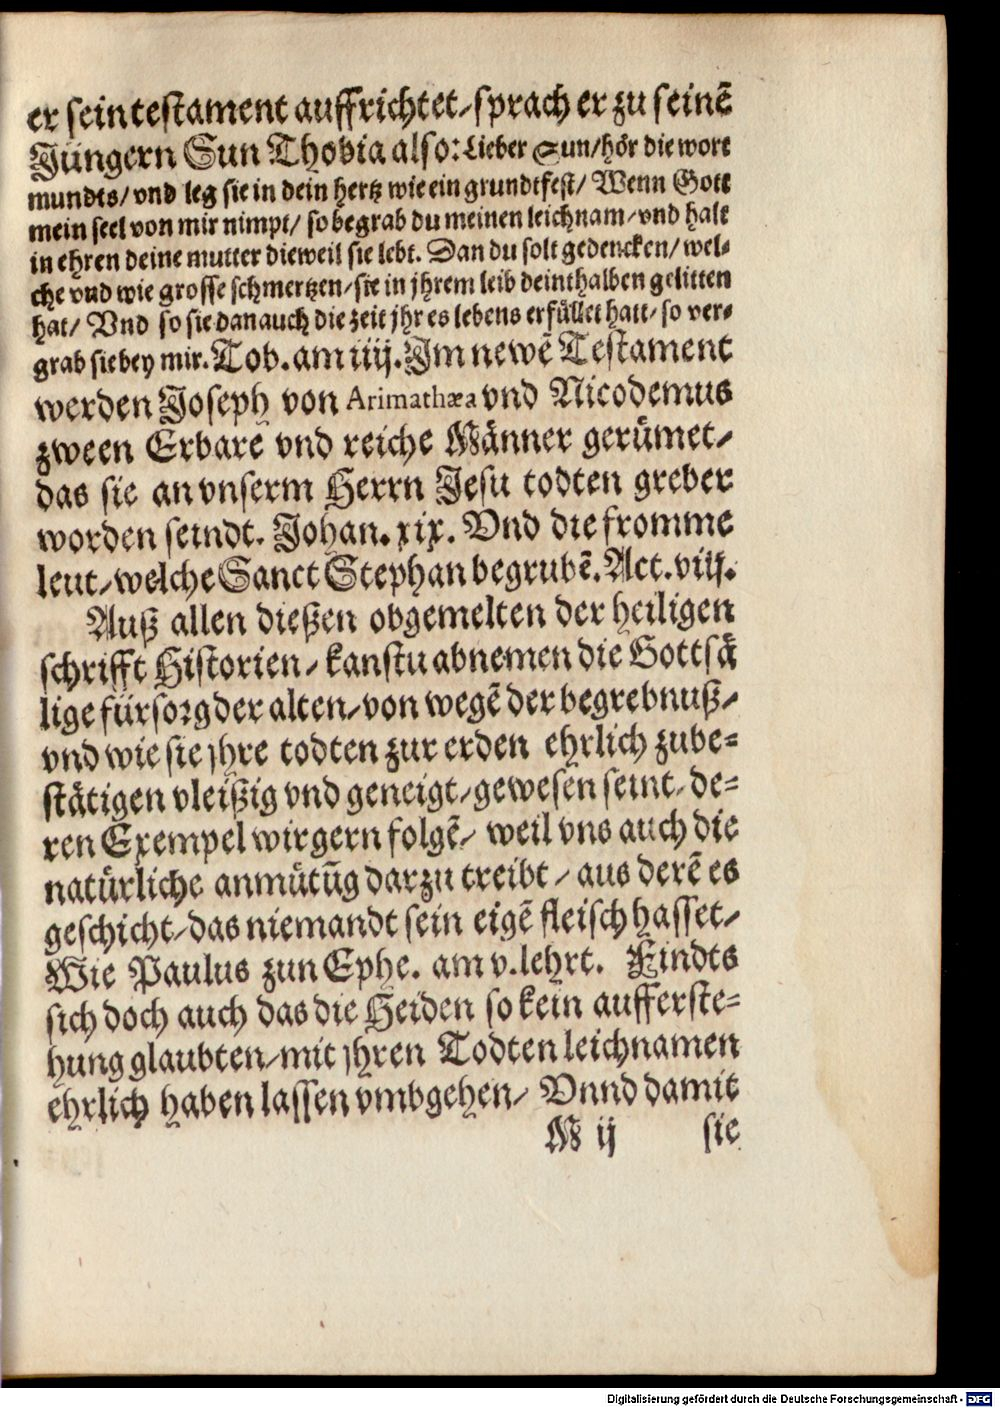 er sein testament auffrichtet/ sprach er zu seinẽ
Jüngern Sun Thobia also: Lieber Sun/ hör die wort
mundts/ vnd leg sie in dein hertz wie ein grundtfest/ Wenn Gott
mein seel von mir nimpt/ so begrab du meinen leichnam/ vnd halt
in ehren deine mutter dieweil sie lebt. Dan du solt gedencken/ wel-
che vnd wie grosse schmertzen/ sie in jhrem leib deinthalben gelitten
hat/ Vnd so sie dan auch die zeit jhr es lebens erfüllet hatt/ so ver-
grab sie bey mir. Tob. am iiij. Jm newẽ Testament
werden Joseph von Arimathæa vnd Nicodemus
zween Erbare vnd reiche Männer gerümet/
das sie an vnserm Herrn Jesu todten greber
worden seindt. Johan. xix. Vnd die fromme
leut/ welche Sanct Stephan begrubẽ. Act. viij.
Auß allen dießen obgemelten der heiligen
schrifft Historien/ kanstu abnemen die Gottsä
lige fürsorg der alten/ von wegẽ der begrebnuß/
vnd wie sie jhre todten zur erden ehrlich zube=
stätigen vleißig vnd geneigt/ gewesen seint/ de=
ren Exempel wir gern folgẽ/ weil vns auch die
natürliche anmütũg darzu treibt/ aus derẽ es
geschicht/ das niemandt sein eigẽ fleisch hasset/
Wie Paulus zun Ephe. am v. lehrt. Findts
sich doch auch das die Heiden so kein aufferste=
hung glaubten/ mit jhren Todten leichnamen
ehrlich haben lassen vmbgehen/ Vnnd damit
M ij sie
Digitalisierung gefördert durch die Deutsche Forschungsgemeinschaft - DFG